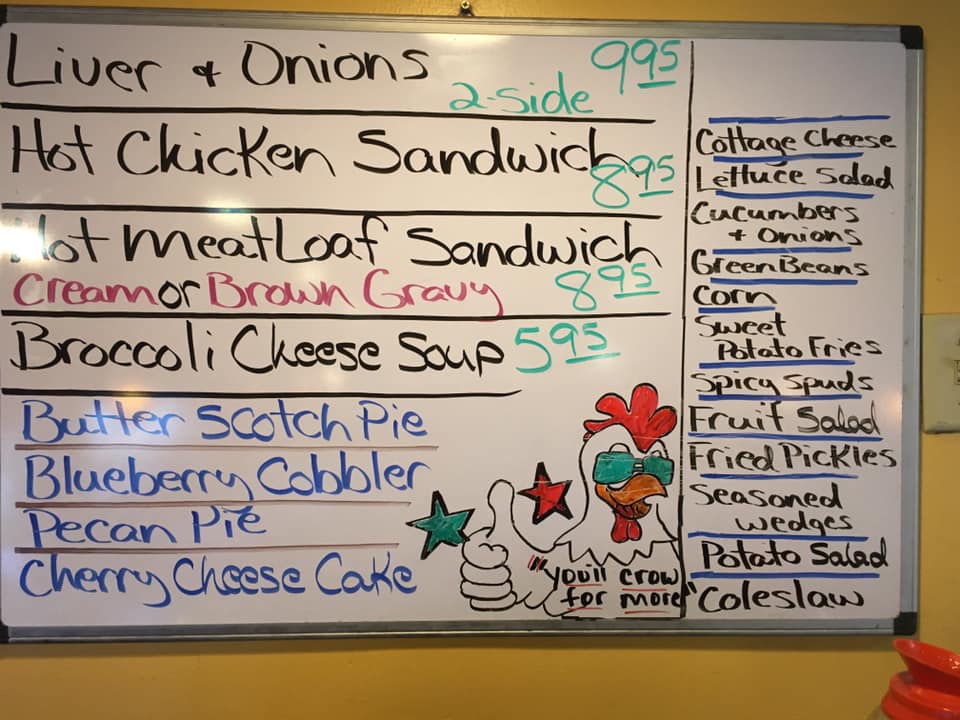 Liver & Onions 9.95
2-side
Hot Chicken Sandwich
8.95
Hot Meatloaf Sandwich
Cream or Brown Gravy 8.95
Broccoli Cheese Soup 5.95
Butter Scotch Pie
Blueberry Cobbler
Pecan Pie
Cherry Cheese Cake
"You'll crow
for more"
Cottage Cheese
Lettuce Salad
Cucumbers
& Onions
Green Beans
Corn
Sweet
Potato Fries
Spicy Spuds
Fruit Salad
Fried Pickles
Seasoned
wedges
Potato Salad
Coleslaw